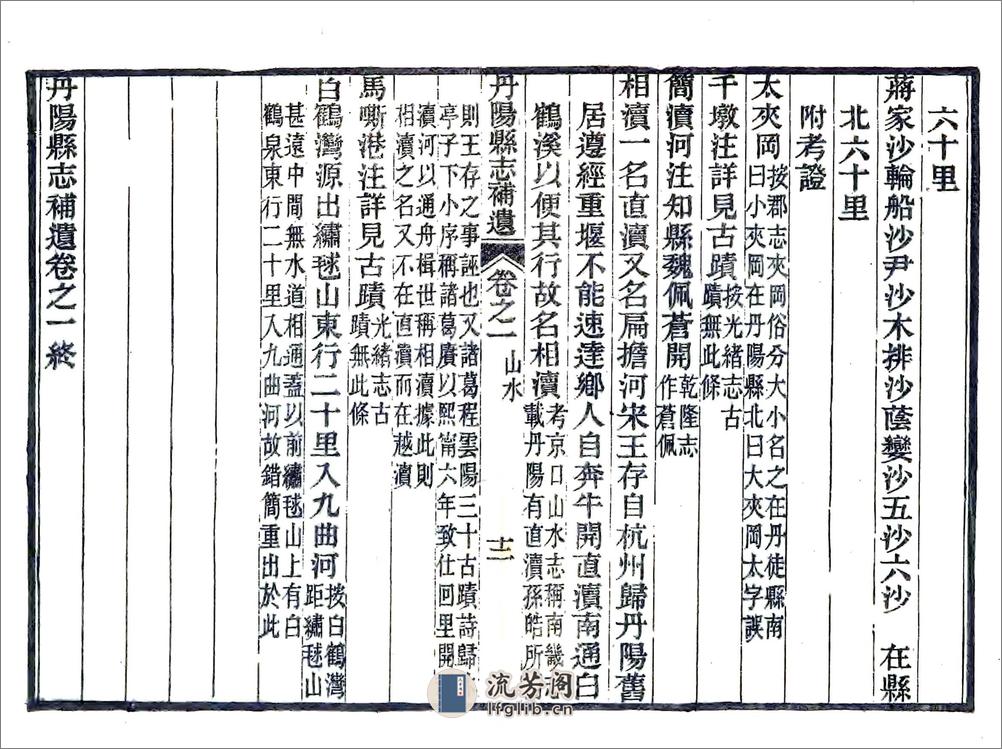 六十里
蔣家沙輪船沙尹沙木排沙蔭孌沙五沙六沙 在縣
北六十里
附考證
太夾岡 按郡志夾岡俗分大小名之在丹徒縣南
曰小夾岡在丹陽縣北曰大夾岡太字誤
千墩注詳見古蹟 按光緒志古
蹟無此條
簡瀆河注知縣魏佩蒼開 乾隆志
作蒼佩
相瀆一名直瀆又名扁擔河宋王存自杭州歸丹陽舊
居遵經重堰不能速達鄉人自奔牛開直瀆南通白
鶴溪以便其行故名相瀆 考京口山水志稱南畿志
載丹陽有直瀆孫皓所
丹陽縣志補遺 卷之一 山水 十二
則王存之事誣也又諸葛程雲陽三十古蹟詩歸
亭子下小序稱諸葛賡以熙甯六年致仕回里開
瀆河以通舟楫世稱相瀆據此則
相瀆之名又不在直瀆而在越瀆
馬嘶港注詳見古蹟 光緒志古
蹟無此條
白鶴灣源出繡毬山東行二十里入九曲河 按白鶴灣
距繡毬山
甚遠中間無水道相通蓋以前繡毬山上有白
鶴泉東行二十里入九曲河故錯簡重出於此
丹陽縣志補遺卷之一終
流芳阁
lfglib.cn